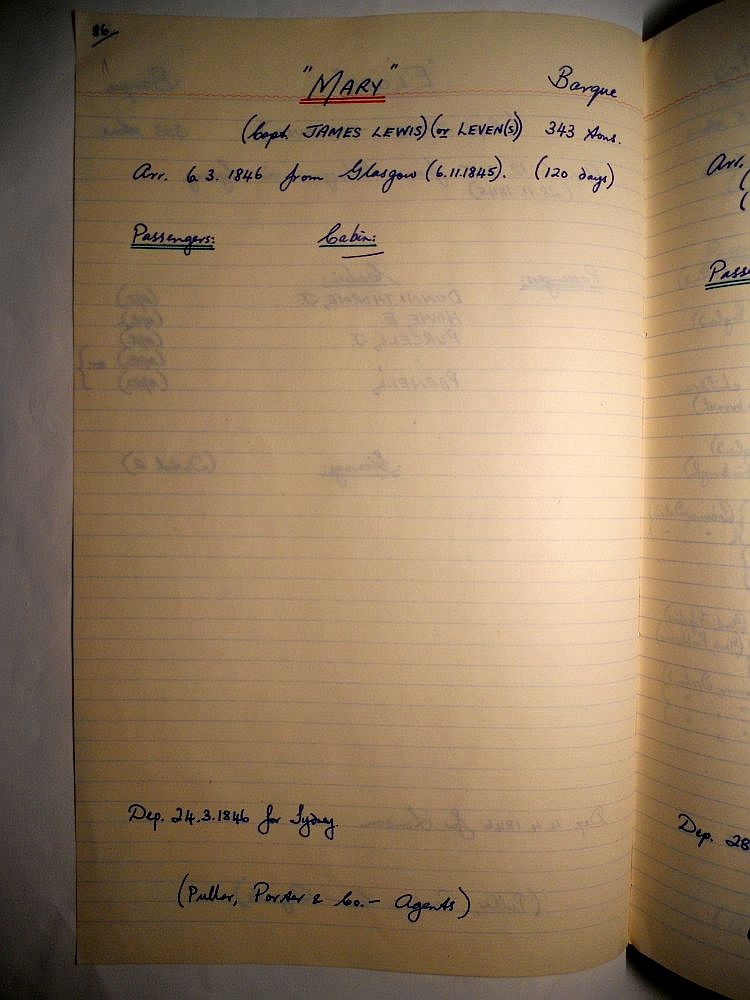 86
"MARY" Barque
(Capt. JAMES LEWIS) (or LEVEN(S)) 343 tons.
Arr. 6.3.1846 from Glasgow (6.11.1845). (120 days)
Passengers: Cabin:
Dep. 24.3.1846 for Sydney.
(Pullar, Porter & Co. - Agents)
Arr.
Passe
Dep. 28